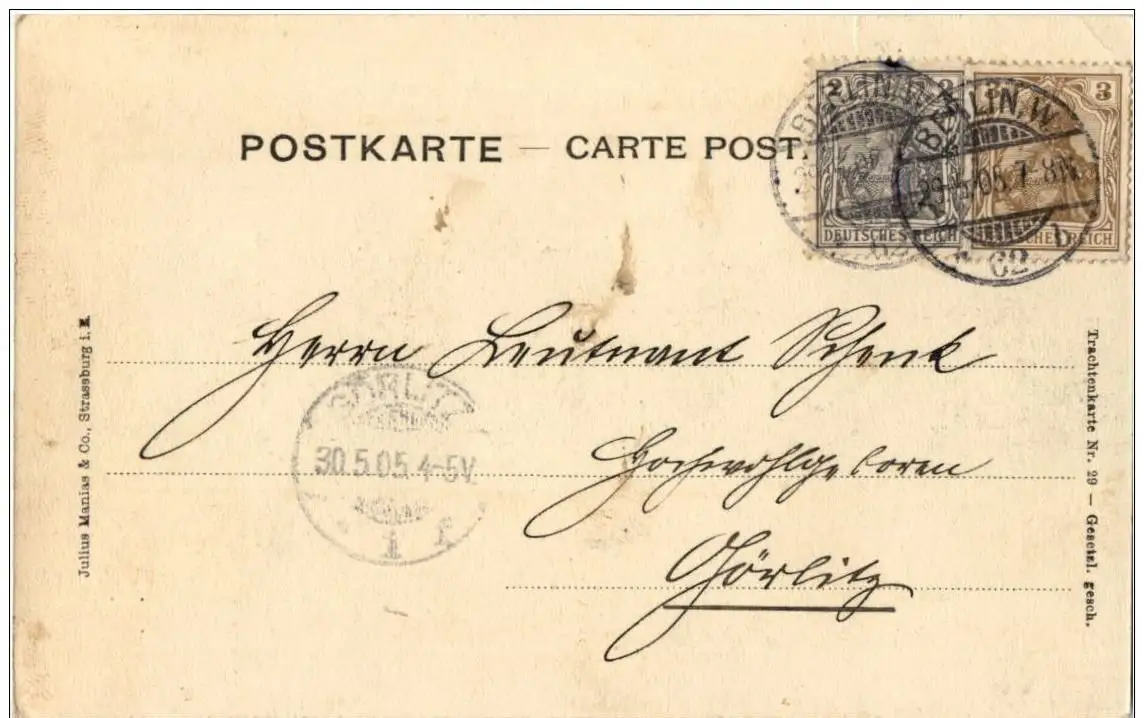 POSTKARTE — CARTE POST.
2
3
3
DEUTSCHES REICH
REICH
BERLIN, W.
29. 5. 05. 7-8 N.
62 b
Herrn Leutnant Schenk
Hochwohlgeboren
Görlitz
GÖRLITZ
30.5.05.4-5V.
1 1
Julius Manias & Co., Strassburg i. E.
Trachtenkarte Nr. 29 — Gesetzl. gesch.